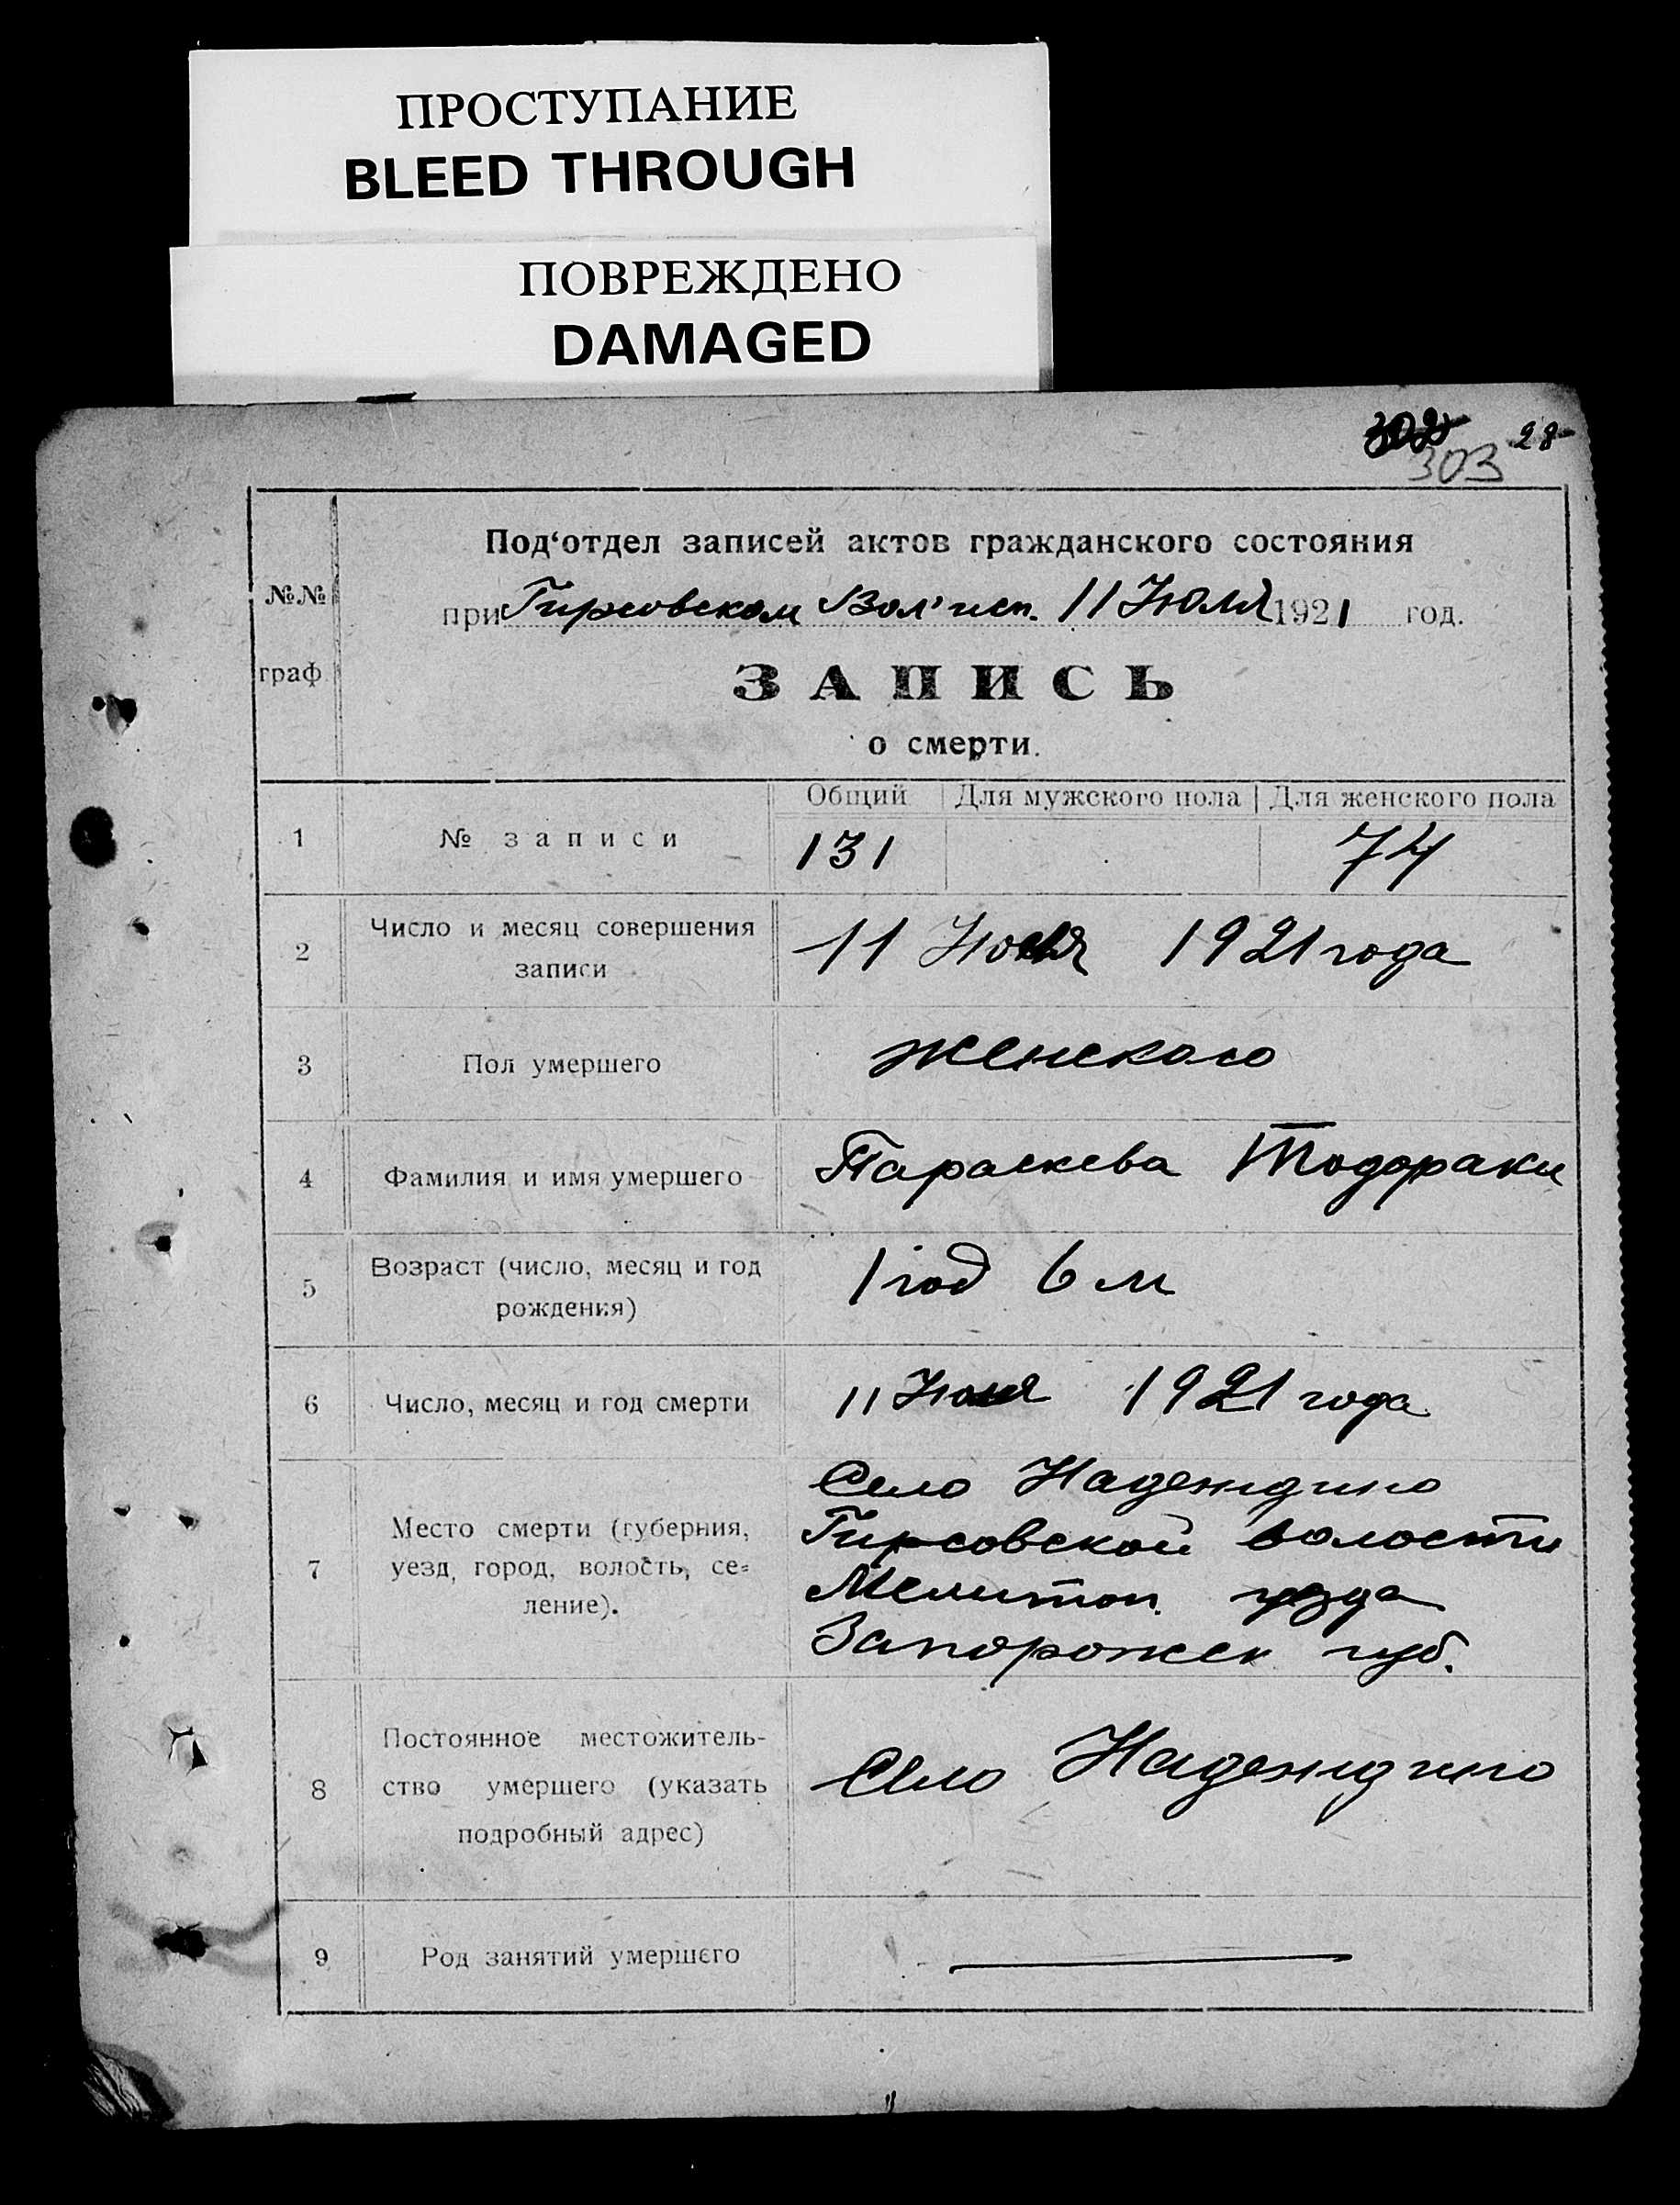 ПРОСТУПАНИЕ
BLEED THROUGH
ПОВРЕЖДЕНО
DAMAGED
302 28
303
Под‘отдел записей актов гражданского состояния
№№
при Гирсовском Вол'исп. 11 Июля 1921 год.
граф.
ЗАПИСЬ
о смерти.
Общий Для мужского пола Для женского пола
1 № записи 131 74
2 Число и месяц совершения
записи
11 Июля 1921 года
3 Пол умершего женского
4 Фамилия и имя умершего Параскева Тодораки
5 Возраст (число, месяц и год
рождения)
1 год 6 м
6 Число, месяц и год смерти 11 Июля 1921 года
7 Место смерти (губерния,
уезд, город, волость, се-
ление).
Село Надеждино
Гирсовской волости
Мелитоп. уезда
Запорожск губ.
8 Постоянное местожитель-
ство умершего (указать
подробный адрес)
Село Надеждино
9 Род занятий умершего